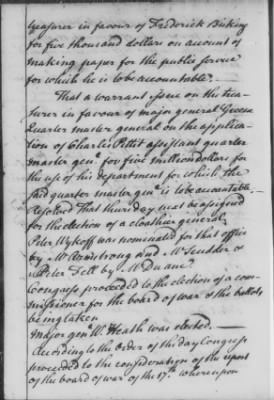 treasurer in favour of Frederick Bicking
for five thousand dollars on account of
making paper for the public service
for which he is to be accountable.
That a warrant issue on the trea-
surer in favour of major general Greene
Quarter master general on the applica-
tion of Charles Pettit assistant quarter
master gen. for five million dollars for
the use of his department for which the
said quarter master gen. is to be accountable.
Resolved That thursday next be assigned
for the election of a cloathier general;
Peter Wykoff was nominated for that office
by Mr Armstrong and Mr Scudder or
Peter Tell by Mr Duane.
Congress proceeded to the election of a com-
missioner for the board of war & the ballots
being taken
Major genl. W. Heath was elected.
According to the Order of the day Congress
proceeded to the consideration of the report
of the board of war of the 17th. whereupon